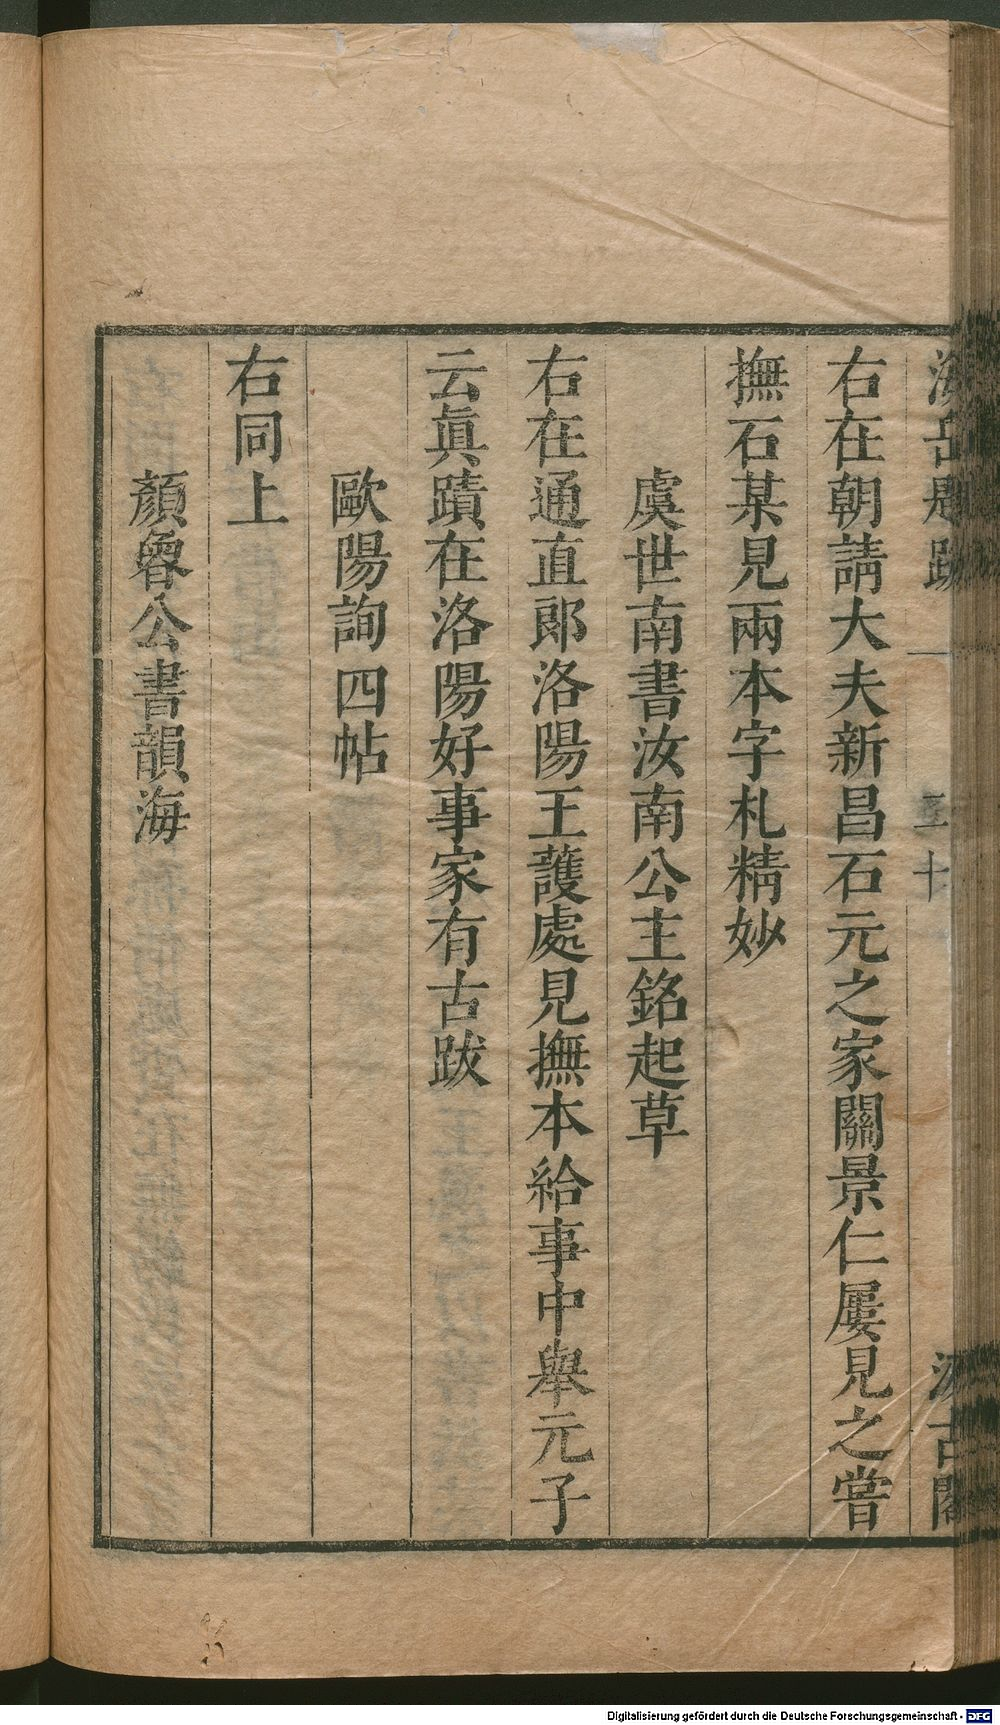 海岳題跋 一 二十 汲古閣
右在朝請大夫新昌石元之家關景仁屢見之嘗
撫石某見兩本字札精妙
虞世南書汝南公主銘起草
右在通直郎洛陽王護處見撫本給事中舉元子
云眞蹟在洛陽好事家有古跋
歐陽詢四帖
右同上
顏魯公書韻海
Digitalisierung gefördert durch die Deutsche Forschungsgemeinschaft - DFG